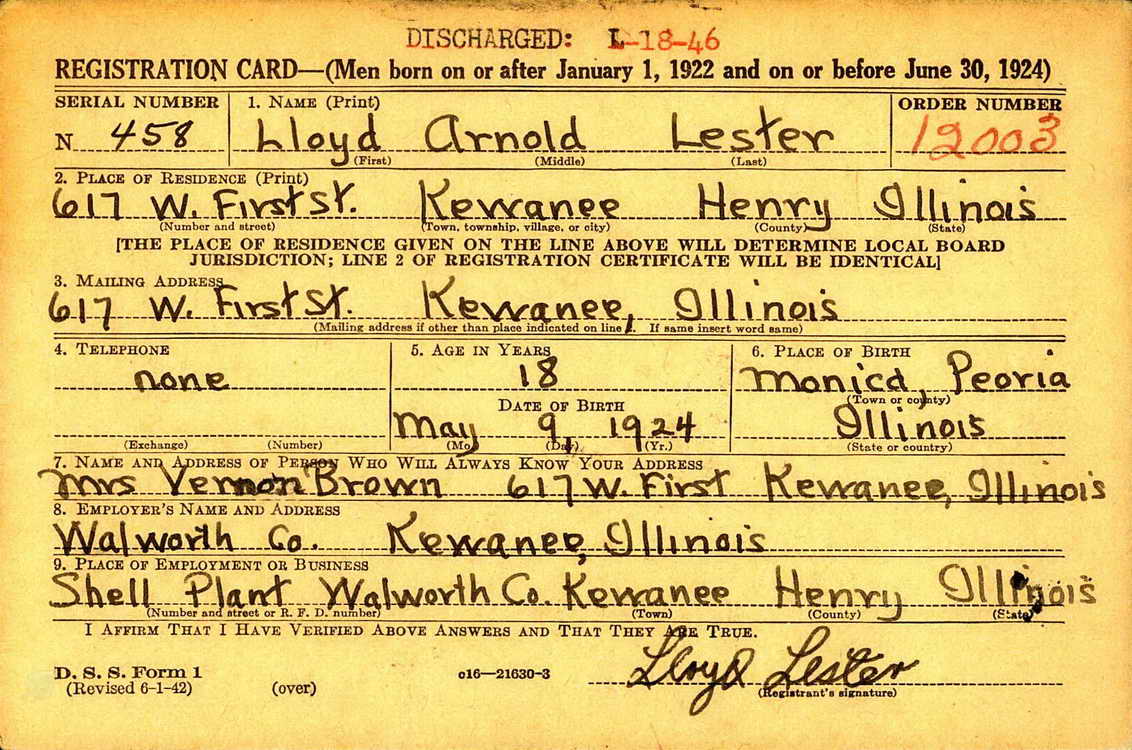 DISCHARGED: L-18-46
REGISTRATION CARD—(Men born on or after January 1, 1922 and on or before June 30, 1924)
SERIAL NUMBER 1. NAME (Print) ORDER NUMBER
N 458 Lloyd Arnold Lester 12003
(First) (Middle) (Last)
2. PLACE OF RESIDENCE (Print)
617 W. First St. Kewanee Henry Illinois
(Number and street) (Town, township, village, or city) (County) (State)
[THE PLACE OF RESIDENCE GIVEN ON THE LINE ABOVE WILL DETERMINE LOCAL BOARD
JURISDICTION; LINE 2 OF REGISTRATION CERTIFICATE WILL BE IDENTICAL]
3. MAILING ADDRESS
617 W. First St. Kewanee, Illinois
(Mailing address if other than place indicated on line. If same insert word same)
4. TELEPHONE 5. AGE IN YEARS 6. PLACE OF BIRTH
none 18 Monica, Peoria
DATE OF BIRTH (Town or county)
May 9, 1924 Illinois
(Exchange) (Number) (Mo.) (Day) (Yr.) (State or country)
7. NAME AND ADDRESS OF PERSON WHO WILL ALWAYS KNOW YOUR ADDRESS
Mrs Vernon Brown 617 W. First Kewanee, Illinois
8. EMPLOYER'S NAME AND ADDRESS
Walworth Co. Kewanee, Illinois
9. PLACE OF EMPLOYMENT OR BUSINESS
Shell Plant Walworth Co. Kewanee Henry Illinois
(Number and street or R. F. D. number) (Town) (County) (State)
I AFFIRM THAT I HAVE VERIFIED ABOVE ANSWERS AND THAT THEY ARE TRUE.
D. S. S. Form 1 o16—21630-3 Lloyd Lester
(Revised 6-1-42) (over) (Registrant's signature)